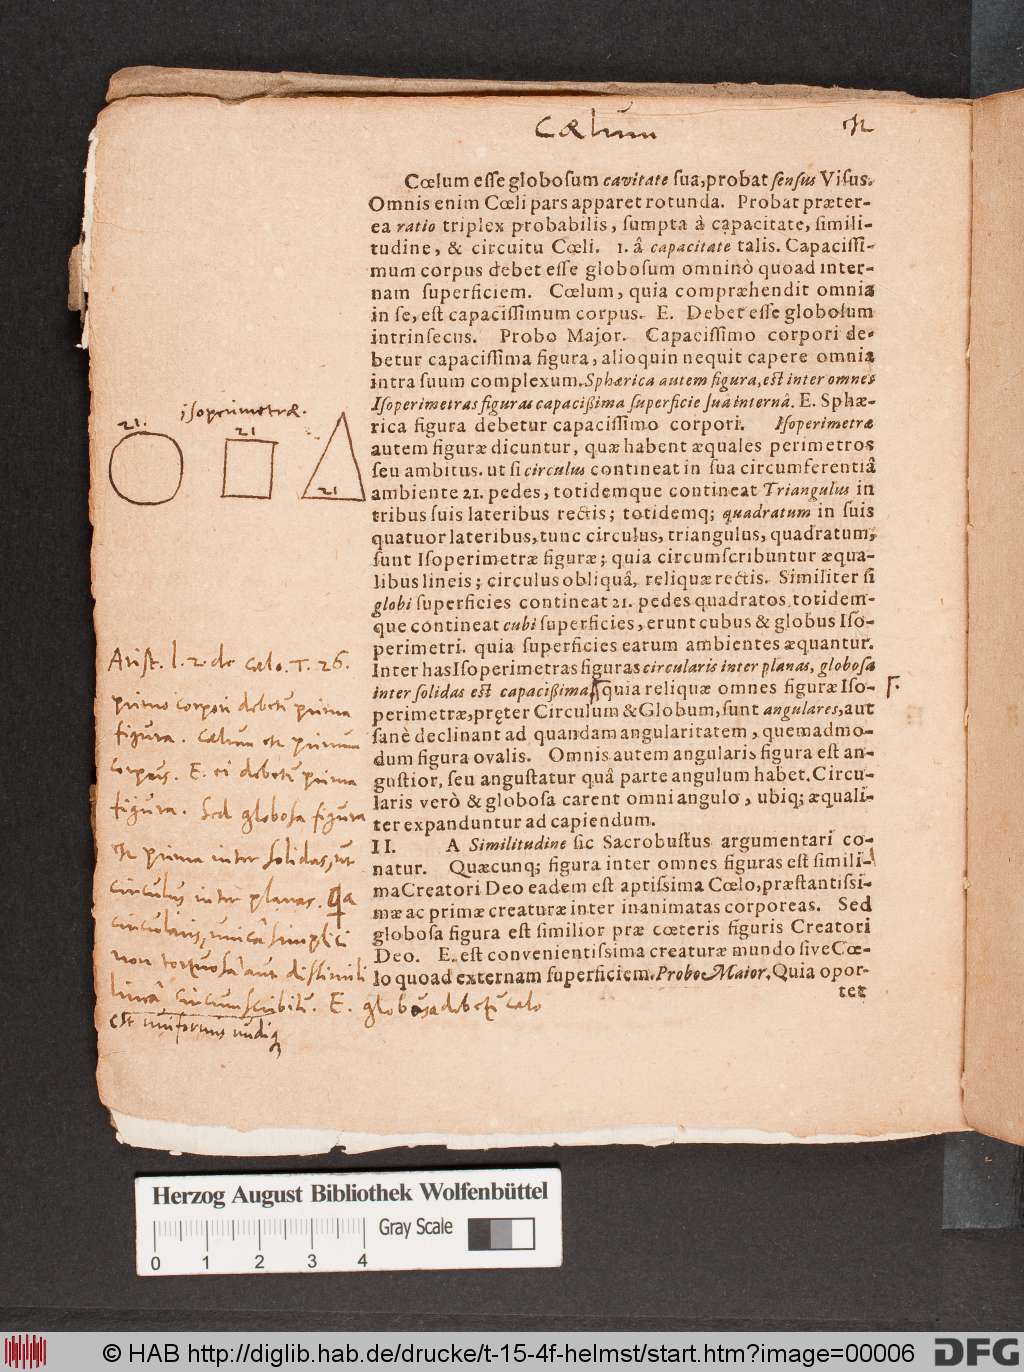 Cœlum est
Cœlum esse globosum cavitate sua, probat sensus Visus.
Omnis enim Cœli pars apparet rotunda. Probat præter-
ea ratio triplex probabilis, sumpta à capacitate, simili-
tudine, & circuitu Cœli. 1. â capacitate talis. Capacissi-
mum corpus debet esse globosum omninò quoad inter-
nam superficiem. Cœlum, quia compræhendit omnia
in se, est capacissimum corpus. E. Debet esse globosum
intrinsecus. Probo Major. Capacissimo corpori de-
betur capacissima figura, alioquin nequit capere omnia
intra suum complexum. Sphærica autem figura, est inter omnes
Isoperimetras figuras capacißima superficie sua internâ. E. Sphæ-
rica figura debetur capacissimo corpori. Isoperimetræ
autem figuræ dicuntur, quæ habent æquales perimetros
seu ambitus. ut si circulus contineat in sua circumferentiâ
ambiente 21. pedes, totidemque contineat Triangulus in
tribus suis lateribus rectis; totidemq; quadratum in suis
quatuor lateribus, tunc circulus, triangulus, quadratum,
sunt Isoperimetræ figuræ; quia circumscribuntur æqua-
libus lineis; circulus obliquâ, reliquæ rectis. Similiter si
globi superficies contineat 21. pedes quadratos totidem-
que contineat cubi superficies, erunt cubus & globus Iso-
perimetri. quia superficies earum ambientes æquantur.
Inter has Isoperimetras figuras circularis inter planas, globosa
inter solidas est capacißima quia reliquæ omnes figuræ Iso-
perimetræ, pręter Circulum & Globum, sunt angulares, aut
sanè declinant ad quandam angularitatem, quemadmo-
dum figura ovalis. Omnis autem angularis figura est an-
gustior, seu angustatur quâ parte angulum habet. Circu-
laris verò & globosa carent omni angulo, ubiq; æquali-
ter expanduntur ad capiendum.
II. A Similitudine sic Sacrobustus argumentari co-
natur. Quæcunq; figura inter omnes figuras est simili-
ma Creatori Deo eadem est aptissima Cœlo, præstantissi-
mæ ac primæ creaturæ inter inanimatas corporeas. Sed
globosa figura est similior præ cœteris figuris Creatori
Deo. E. est convenientissima creaturæ mundo sive Cœ-
lo quoad externam superficiem. Probo Maior. Quia opor-
tet
isoperimetræ.
21.
21
21
Arist. l. 2. de cælo. T. 26.
primo corpori debetur prima
figura. Cælum est primum
corpus. E. ei debetur prima
figura. Sed globosa figura
est prima inter solidas, ut
circulus inter planas. Qa
circularis, unicâ simplici
non tortuosâ aut dissimili
lineâ circumscribitur. E. globosa debetur cælo
est uniformis undiq
Herzog August Bibliothek Wolfenbüttel
Gray Scale
0 1 2 3 4
© HAB http://diglib.hab.de/drucke/t-15-4f-helmst/start.htm?image=00006
DFG